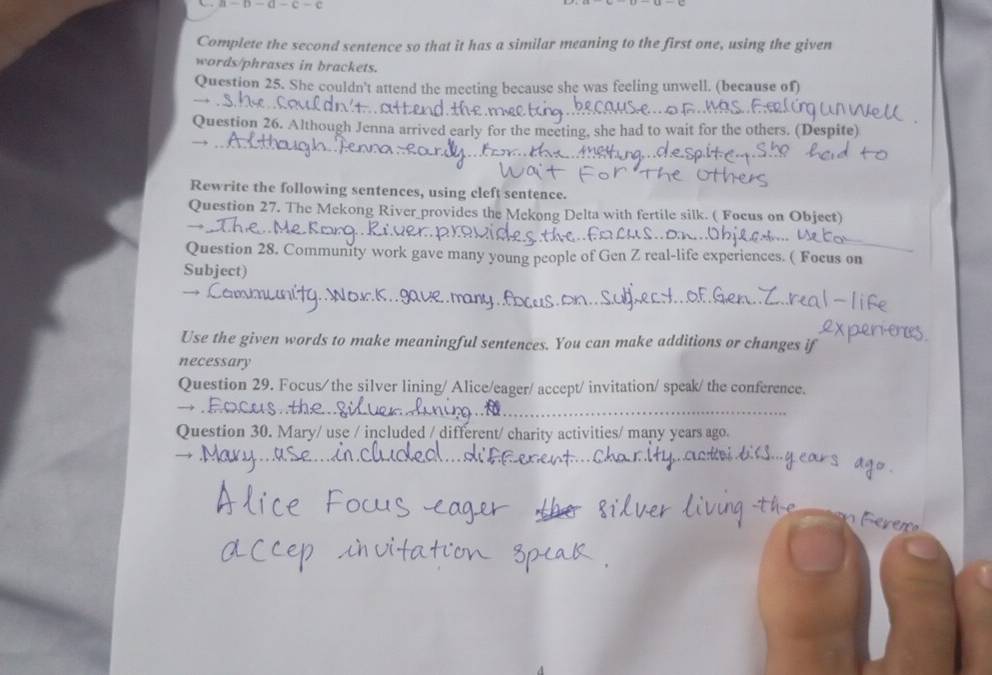 C. a – b – d – c – e
Complete the second sentence so that it has a similar meaning to the first one, using the given
words/phrases in brackets.
Question 25. She couldn't attend the meeting because she was feeling unwell. (because of)
→ She couldn't attend the meeting because of was feeling unwell.
Question 26. Although Jenna arrived early for the meeting, she had to wait for the others. (Despite)
→ Although Jenna early for the metting despite, She had to
wait For The Others
Rewrite the following sentences, using cleft sentence.
Question 27. The Mekong River provides the Mekong Delta with fertile silk. ( Focus on Object)
→ The Mekong River provides the focus on Object
Question 28. Community work gave many young people of Gen Z real-life experiences. ( Focus on
Subject)
→ Community work gave many focus on subject of Gen Z real-life
experiences.
Use the given words to make meaningful sentences. You can make additions or changes if
necessary
Question 29. Focus/ the silver lining/ Alice/eager/ accept/ invitation/ speak/ the conference.
→ Focus the silver lining
Question 30. Mary/ use / included / different/ charity activities/ many years ago.
→ Mary use included different charity activities years ago.
Alice Focus eager silver living the
accep invitation speak.
4